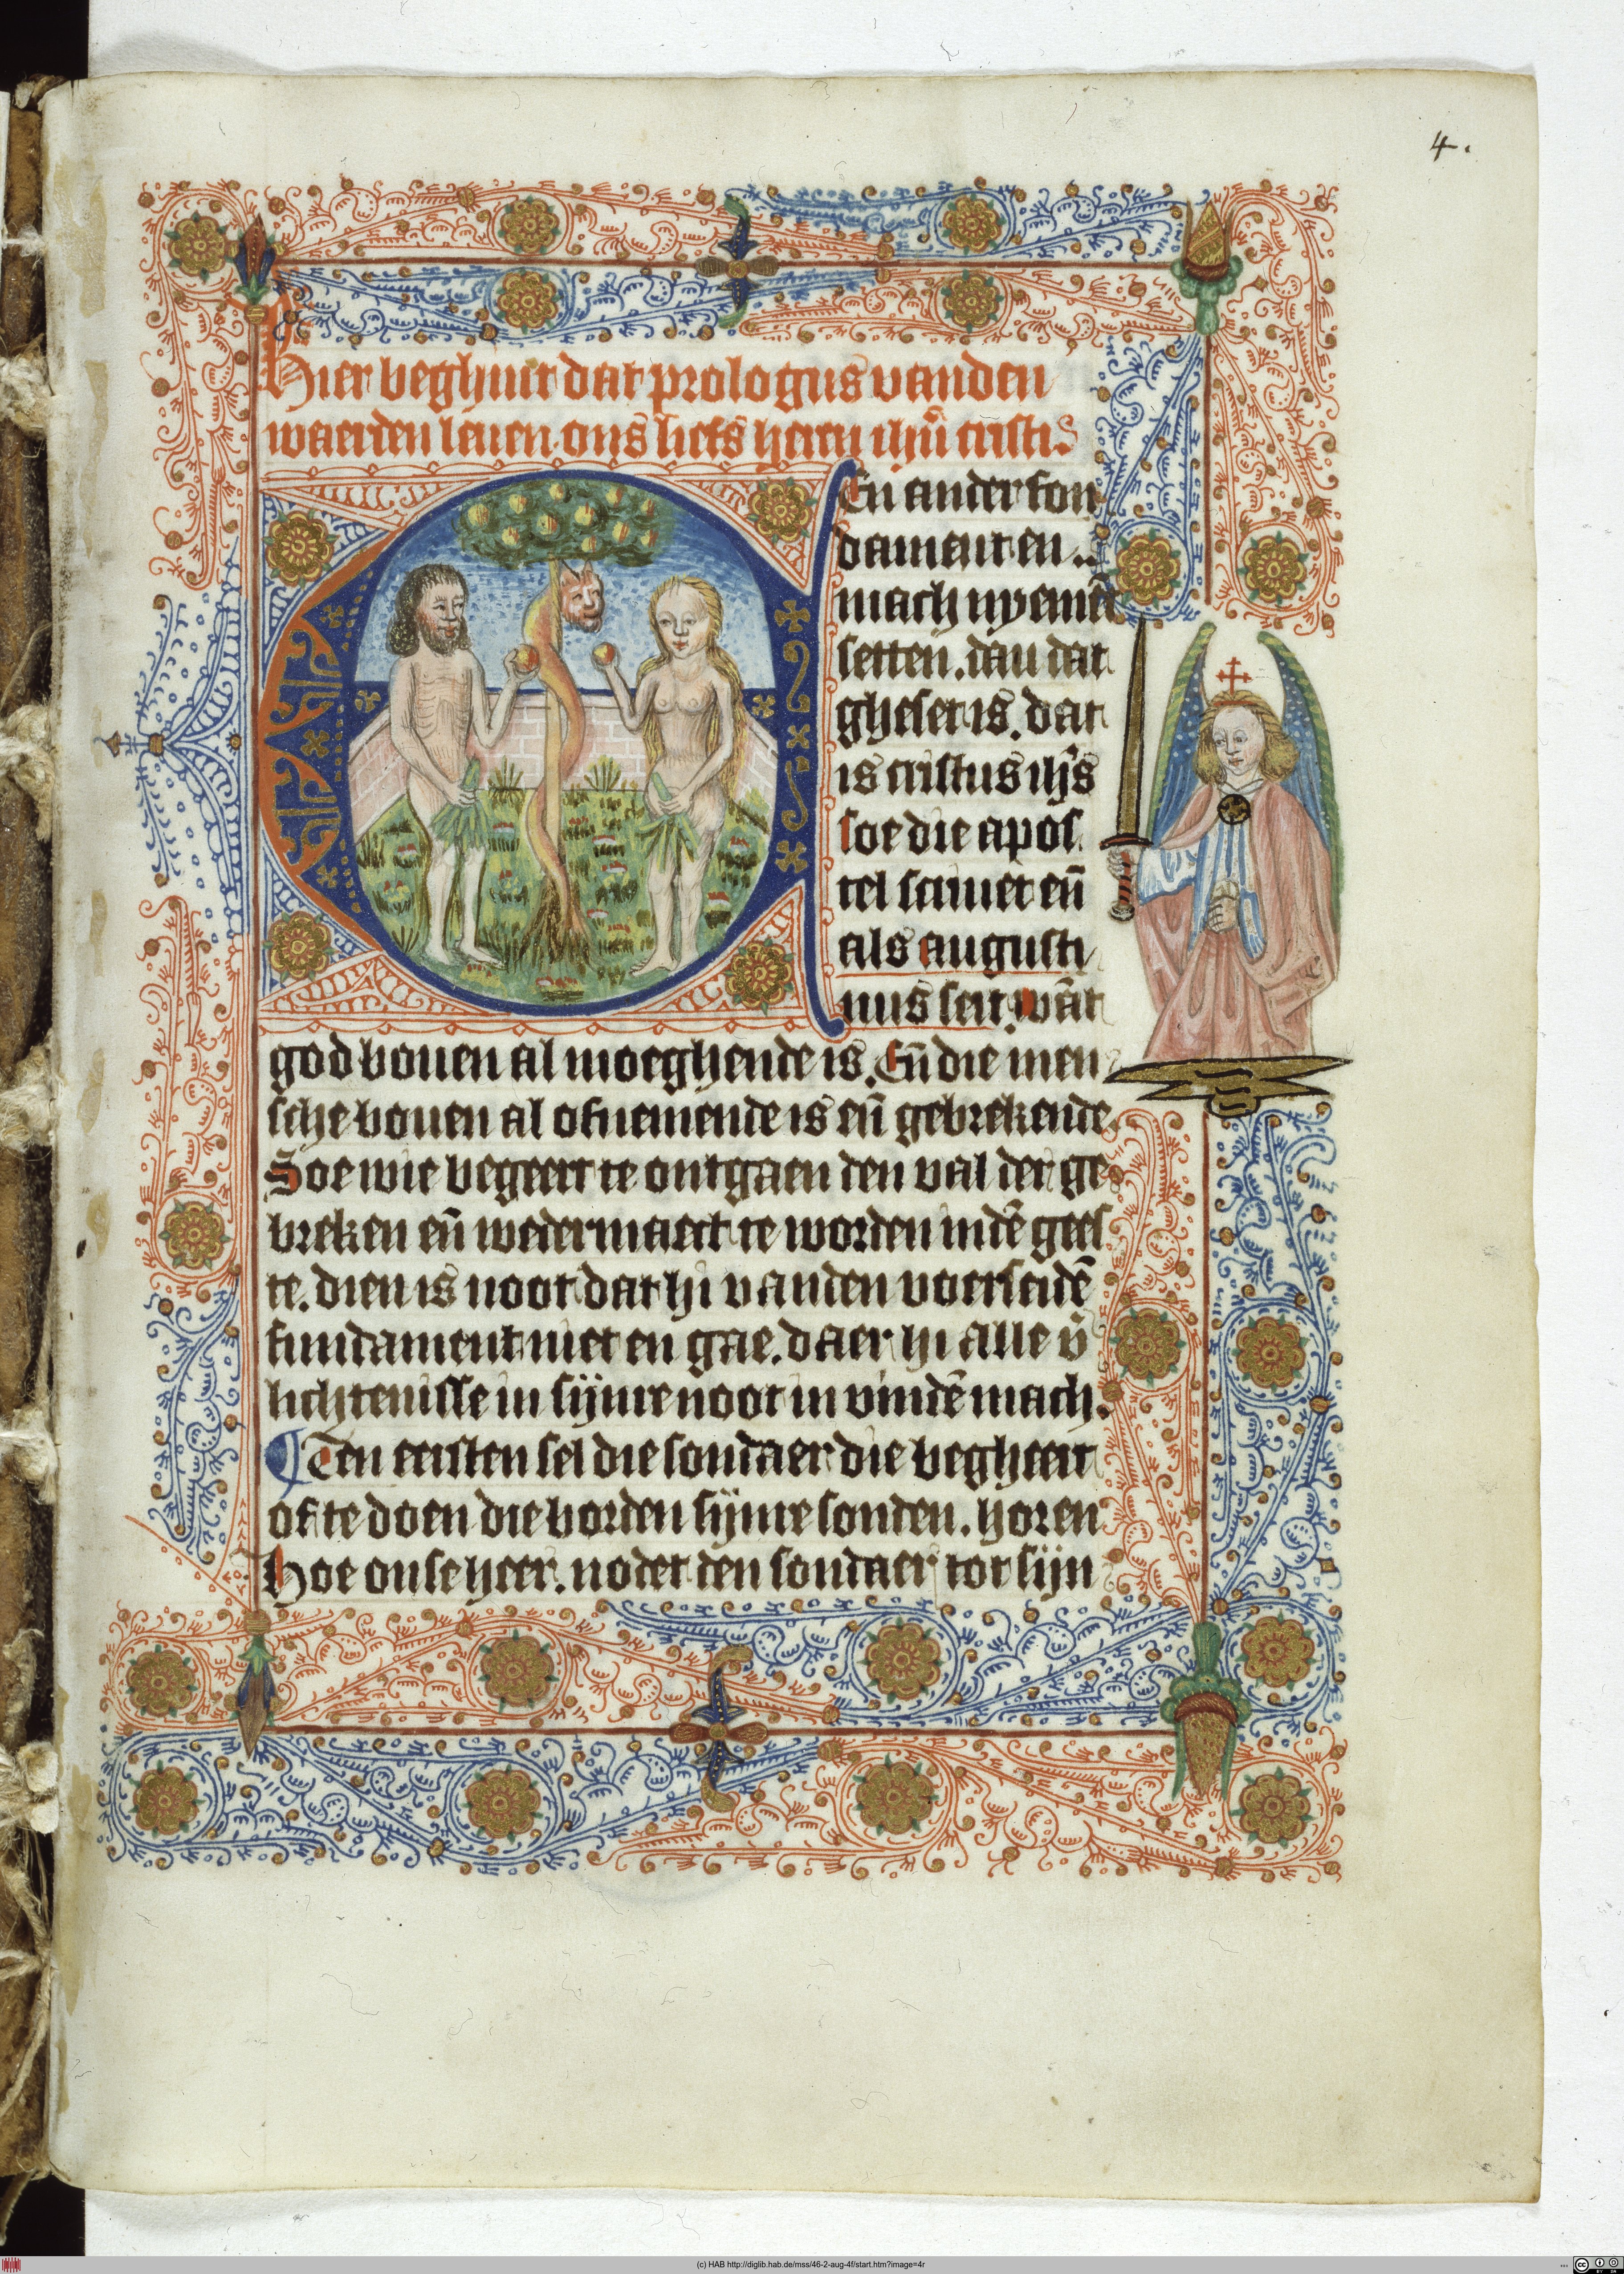 4.
Hier beghint dat prologus vanden
waerden leuen ons liefs heren ihū cristi
En ander fon
dament en
mach nyemēt
setten. dan dat
gheset is. dat
is cristus ihs
soe die apos
tel scriuet en̄
als augusti
nus seit. wāt
god bouen al moeghende is. En̄ die men
sche bouen al ofnemende is en̄ gebrekende
Soe wie begeert te ontgaen den val der ge
breken en̄ wedermaect te worden indē gees
te. dien is noot dat hi vanden voerseidē
fundament niet en gae. daer hi alle v̄
lichtenisse in sijnre noot in vindē mach.
Ten eersten sel die sondaer die begheert
of te doen die borden sijnre sonden. horen
Hoe onse heer. nodet den sondaer tot sijn
(c) HAB http://diglib.hab.de/mss/46-2-aug-4f/start.htm?image=4r